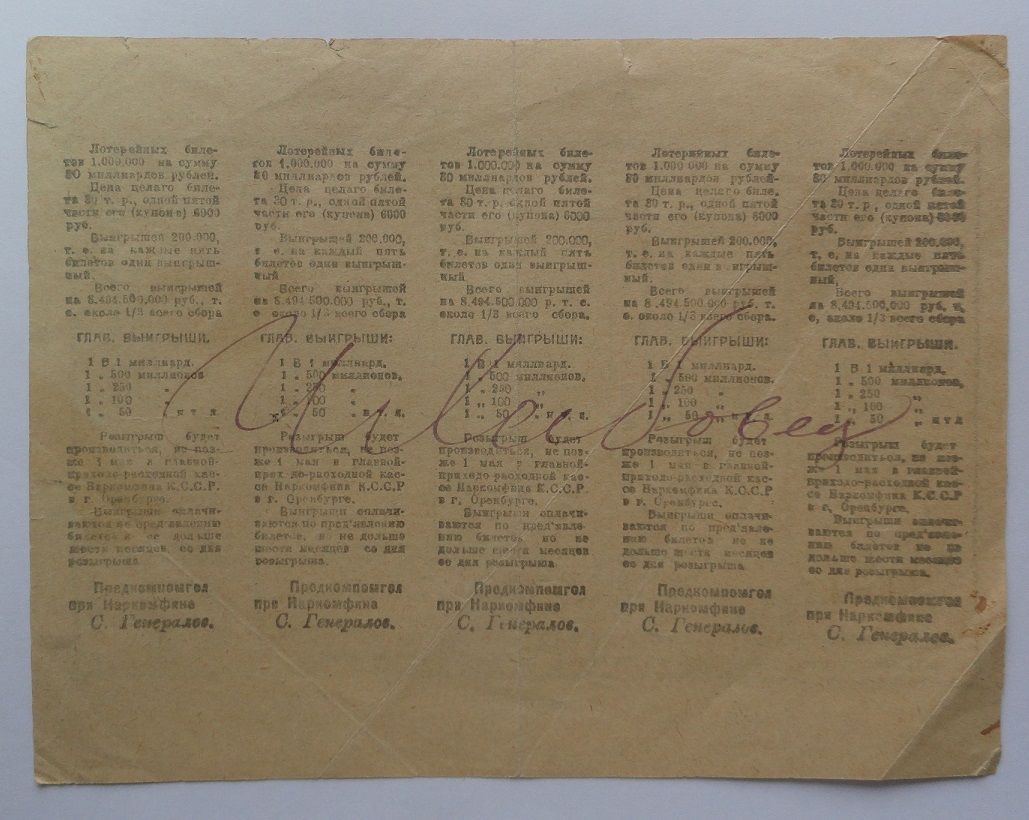 Лотерейных биле-
тов 1.000.000 на сумму
30 миллиардов рублей.
Цена целаго биле-
та 30 т. р., одной пятой
части его (купона) 6000
руб.
Выигрышей 200.000,
т. е. на каждые пять
билетов один выигрыш-
ный.
Всего выигрышей
на 8.494.500.000 руб., т.
е. около 1/3 всего сбора
ГЛАВ. ВЫИГРЫШИ:
1 В 1 миллиард.
1 „ 500 миллионов
1 „ 250 „
1 „ 100 „
1 „ 50 „ и т д.
Розыгрыш будет
производиться, не поз-
же 1 мая в главной-
приходо-расходной кас-
се Наркомфина К.С.С.Р
в г. Оренбурге.
Выигрыши оплачи-
ваются по пред'явлению
билетов не дольше
шести месяцев, со дня
розыгрыша.
Предкомпомгол
при Наркомфине
С. Генералов.
Лотерейных биле-
тов 1.000.000 на сумму
30 миллиардов рублей.
Цена целаго биле-
та 30 т. р., одной пятой
части его (купона) 6000
руб.
Выигрышей 200,000,
т. е. на каждый пять
билетов один выигрыш-
ный
Всего выигрышей
на 8.494.500.000 руб., т.
е около 1/3 всего сбора
ГЛАВ. ВЫИГРЫШИ:
1 В 1 миллиард.
1 „ 500 миллионов,
1 „ 250 „
1 „ 100 „
1 „ 50 „ и т. д.
Розыгрыш будет
производиться, не поз-
же 1 мая в главной-
приходо-расходной кас-
се Наркомфина К.С.С.Р
в г. Оренбурге.
Выигрыши оплачи-
ваются по пред'явлению
билетов, но не дольше
шести месяцев со дня
розыгрыша.
Предкомпомгол
при Наркомфине
С. Генералов.
Лотерейных биле-
тов 1.000.000 на сумму
30 миллиардов рублей.
Цена целаго биле-
та 30 т. р. одной пятой
части его (купона) 6000
руб.
Выигрышей 200.000,
т. е. на каждый пять
билетов один выигрыш-
ный.
Всего выигрышей
на 8.494.500.000 р. т. е.
около 1/3 всего сбора.
ГЛАВ. ВЫИГРЫШИ:
1 В 1 миллиард.
1 „ 500 миллионов,
1 „ 250 „
1 „ 100 „
1 „ 50 „ и т. д.
Розыгрыш будет
производиться, не поз-
же 1 мая в главной-
приходо-расходной кас-
се Наркомфина К.С.С.Р
в г. Оренбурге.
Выигрыши оплачи-
ваются по пред'явле-
нию билетов но не
дольше шести месяцев
со дня розыгрыша
Предкомпомгол
при Наркомфине
С. Генералов.
Лотерийных биле-
тов 1.000.000 на сумму
30 миллиардов рублей.
Цена целаго биле-
та 30 т. р., одной пятой
части его (купона) 6000
руб.
Выигрышей 200.000,
т. е. на каждые пять
билетов один выигрыш-
ный,
Всего выигрышей
на 8.494.500.000 руб. т.
е. около 1/3 всего сбора.
ГЛАВ. ВЫИГРЫШИ:
1 В 1 миллиард.
1 „ 500 миллионов.
1 „ 250 „
1 „ 100 „
1 „ 50 „ и т. д.
Розыгрыш будет
производиться, не поз-
же 1 мая в главной-
приходо-расходной кас-
се Наркомфина К.С.С.Р
в г. Оренбурге.
Выигрыши оплачи-
ваются по пред'явле-
нию билетов но не
дольше шести месяцев
со дня розыгрыша.
Предкомпомгол
при Наркомфине
С. Генералов.
Лотерейных биле-
тов 1.000.000 на сумму
30 миллиардов рублей.
Цена целаго биле-
та 30 т. р., одной пятой
части его (купона) 6000
руб.
Выигрышей 200.000,
т. е. на каждые пять
билетов один выигрыш-
ный,
Всего выигрышей
на 8.494.500,000 руб, т,
е, около 1/3 всего сбора
ГЛАВ. ВЫИГРЫШИ:
1 В 1 миллиард.
1 „ 500 миллионов,
1 „ 250 „
1 „ 100 „
1 „ 50 „ и т д
Розыгрыш будет
производиться, не поз-
же 1 мая в главной-
приходо-расходной кас-
се Наркомфина К.С.С.Р
в г, Оренбурге,
Выигрыши оплачи-
ваются по пред'явле-
нию билетов но не
дольше шести месяцев
со дня розыгрыша,
Предкомпомгол
при Наркомфине
С. Генералов.